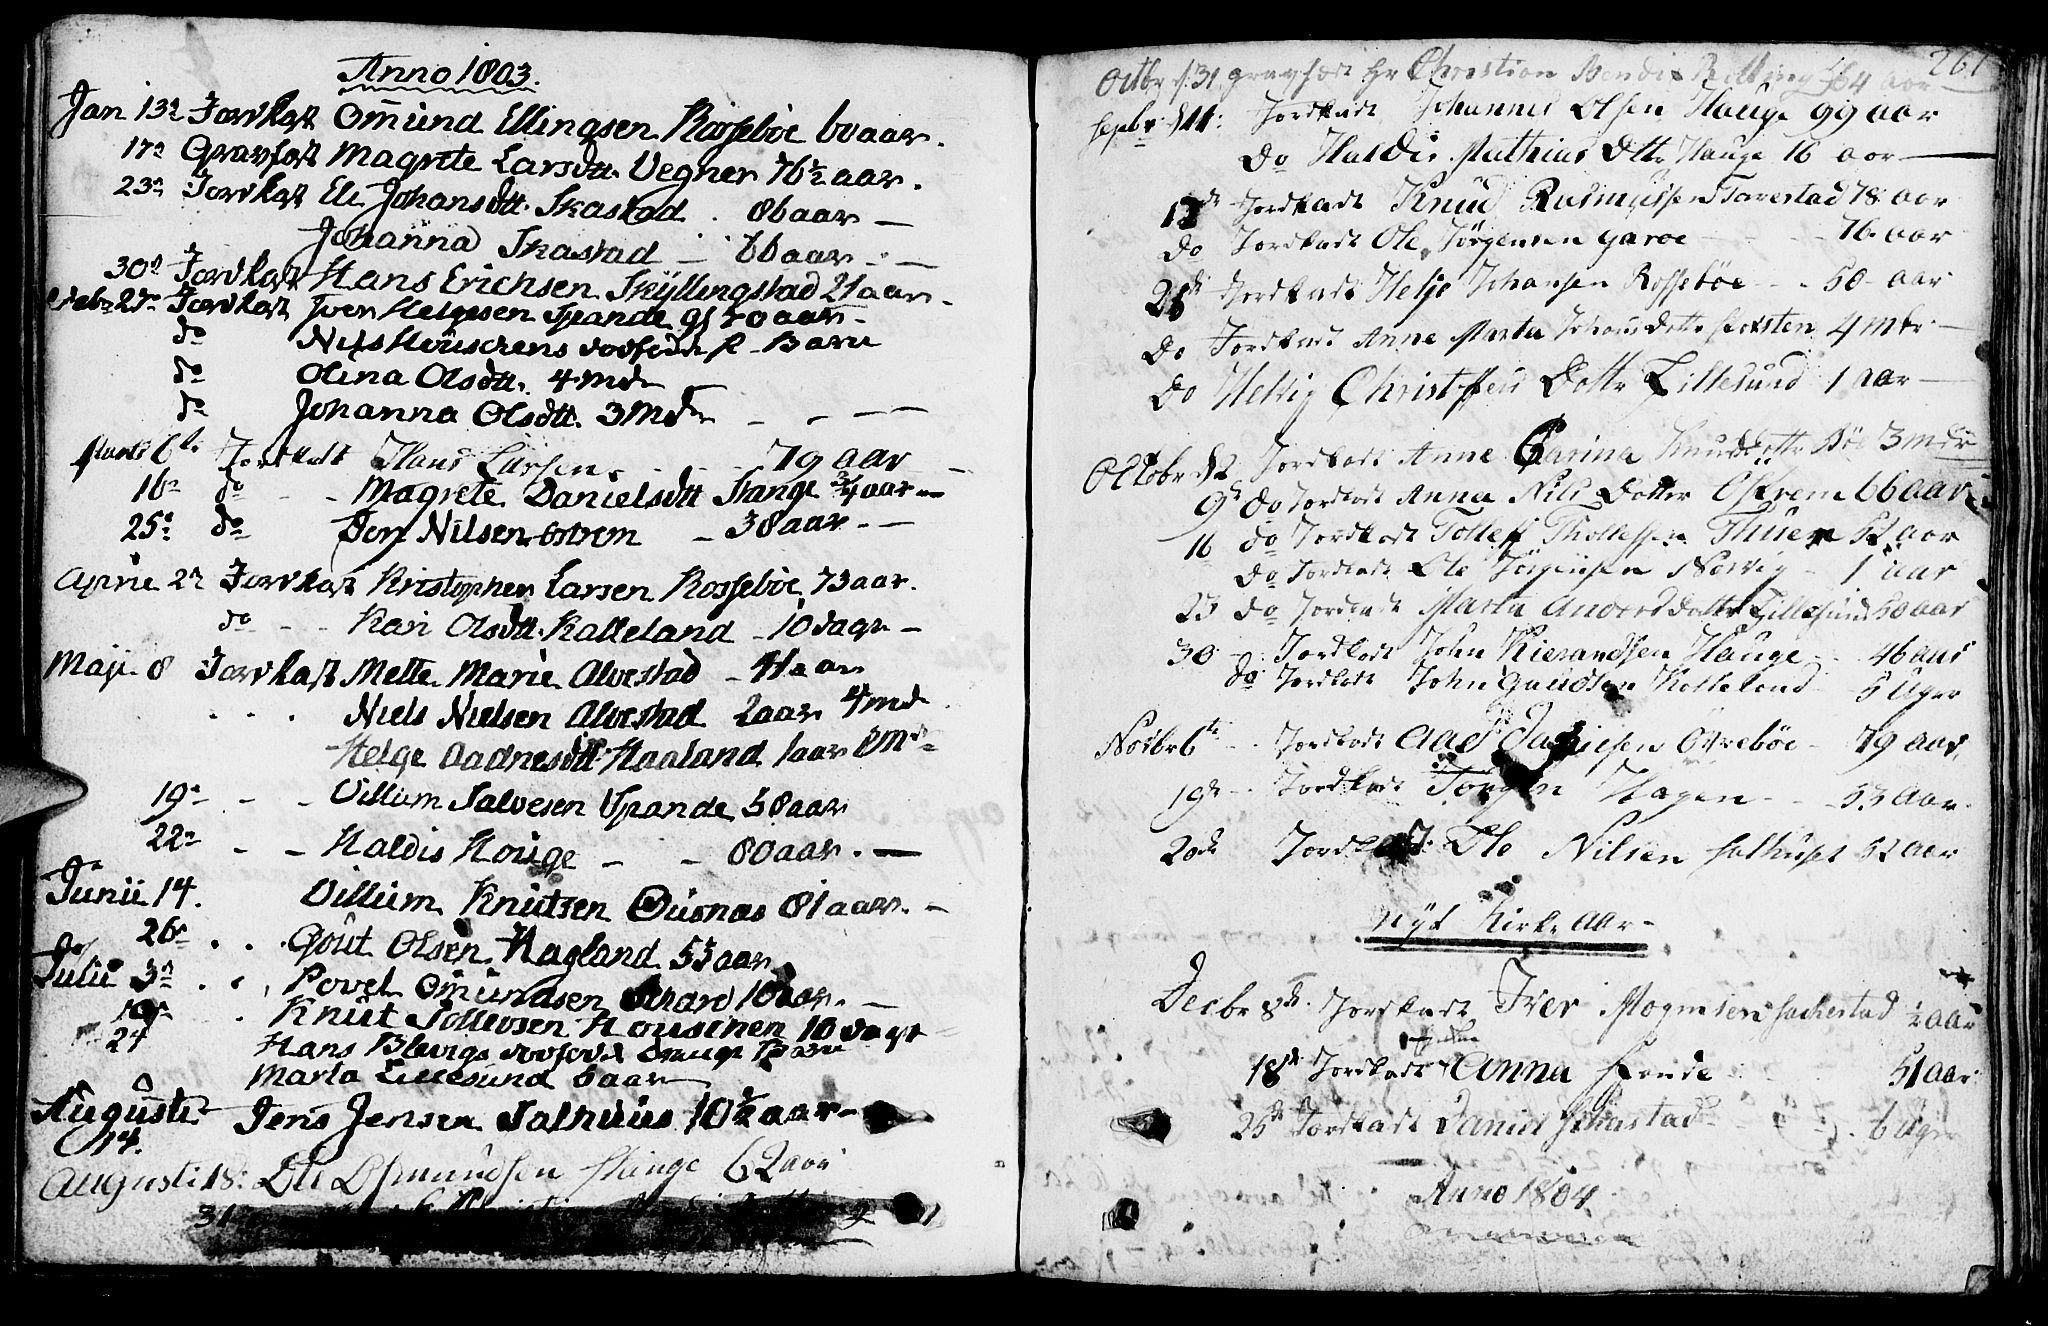 Anno 1803.
Jan 13de Jordkast Omund Ellingsen Rossebøe 60 aar.
17de Gravfæst Magrete Larsdtt. Vegner 76½ aar.
23de Jordkast Eli Johansdtt. Skastad. 86 aar —
Johanna Skastad — 66 aar - —
30de Jordkast Hans Erichsen Skyllingstad 21 aar -
Febr 27de Jordkast Iver Helgesen Spande 70 aar -
do Nils Houschens dodfødde Barn
do Olena Olsdtt. 4 Mdr
do Johanna Olsdtt. 3 Mdr - — —
Marti 6te Jordkast Hans Larsen - - 79 aar
16de do - - Magrete Danielsdtt Stange ¾ aar —
25de do Nilsen Østrem - 38 aar - —
Aprile 27 Jordkast Kristopher Larsen Rossebøe 73 aar.
do - - Kari Olsdtt. Kalleland - 10 dage —
Maji 8 Jordkast Mette Marie Alvestad - 41 aar
. . . Niels Nielsen Alvestad 2 aar 4 mdr
Helge Aadnesdtt Haaland 1 aar 8 Mdr
19de - - Villum Salvesen Spande 58 aar
22de - - Haldis Houge - - 80 aar. —
Junii 14. Villum Knutsen Øusnes 81 aar. -
26de . . Gout Olsen Hagland 53 aar
Julii 3de . . Povel Omundsen 10 aar. —
10de . Knut Sollevsen Houschen 10 dage
24 Hans Bluigs dodfød Drenge Barn
Marta Lillesund 6 aar
Augusti 14. Jens Jensen Salhuus 10½ aar -
Augusti 18: Ole Osmundsen Stange 62 aar
31
261
Octbr d. 31 gravfæst Hr Christian Bendix 64 aar
Sepbr d 11: Jordkast Johannes Olsen Hauge 99 aar
do Haldis Mathias Dttr Hauge 16 aar —
12de Jordkast Knud Rasmussen Tarestad 78 aar
do Jordkast Ole Jørgensen Garoe - - - 76 aar
25de Jordkast Helje Johansen Rossebøe - - 50 aar
do Jordkast Anne Marta Johans Dotter 4 Mdr —
do Hellig Christoffers Dottr Lillesund 1 aar —
Octobr d 2 Jordkast Anne Carina Knudsdotter Bøe 3 mdr
9de do Jordkast Anna Nils Dotter Østrem 66 aar
16 do Jordkast Tollef Thollefsen Thuen 52 aar
do Jordkast Ole Jørgensen Norvig - 1 aar
23 do Jordkast Marta Anders dotter Lillesund 50 aar
30 - Jordkast John Kierandsen Hauge - 46 aar
do Jordkast John Gundsen Kolleland 5 Uger
Novbr 6te - . Jordkast Aad Øvrebøe - 79 aar.
19de - . Jordkast Jørgen Hagen - - 53 aar.
20de Jordkast Ole Nilsen Salhuset 52 aar
Nyt Kirke Aar -
Decbr 8de. Jordkast Iver Mognesen Sackestad ½ aar
18de Jordkast Anna Spande - - - 51 aar
25de Jordkast Daniel Skastad - . 6 Uger
Anno 1804.